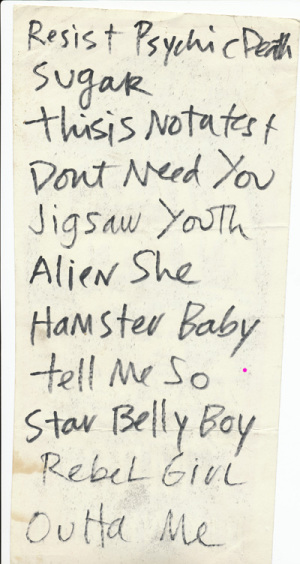 Resist Psychic Death
Sugar
thisis Not a test
Dont Need You
Jigsaw Youth
Alien She
Hamster Baby
tell Me So
Star Belly Boy
Rebel Girl
Outta Me